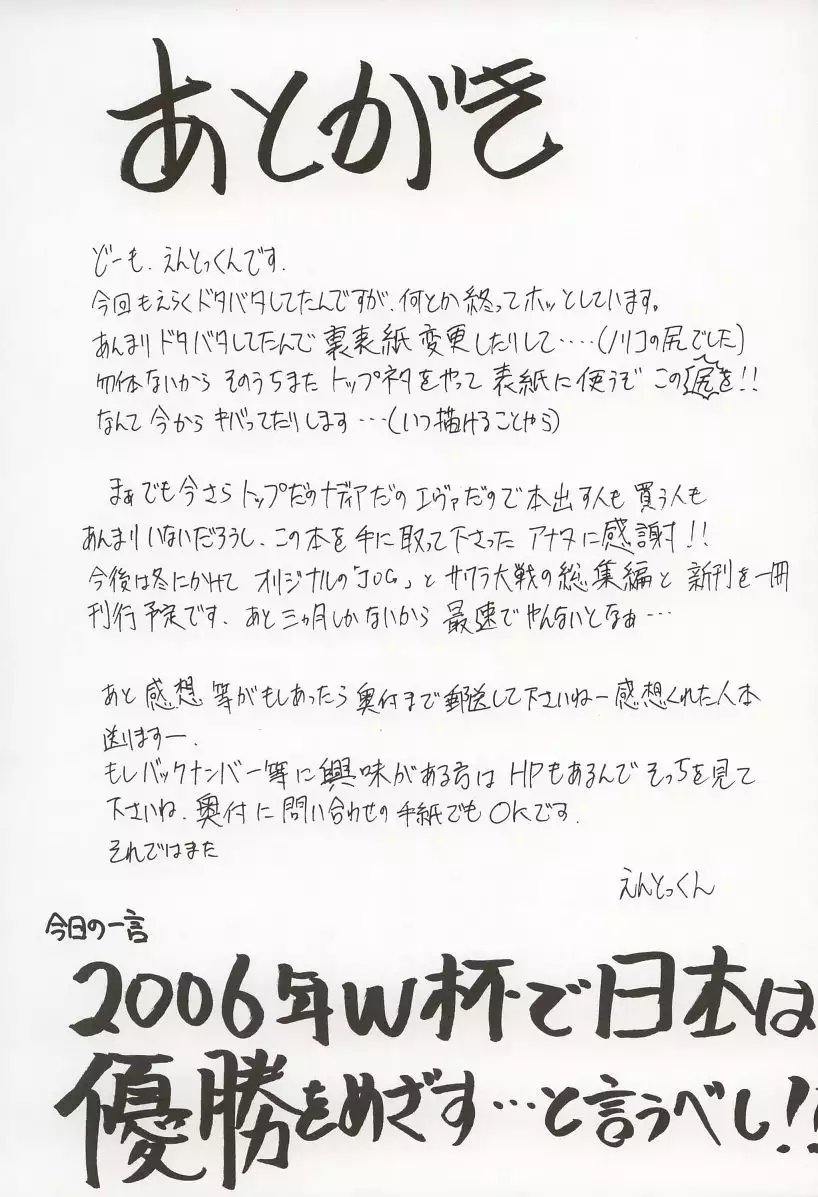 あとがき
どーも、えんとっくんです。
今回もえらくドタバタしてたんですが、何とか終ってホッとしています。
あんまりドタバタしてたんで裏表紙変更したりして‥‥(ノリコの尻でした)
勿体ないから そのうちまた トップネタをやって 表紙に使うぞ この尻を!!
なんて 今から キバってたりします…(いつ描けることやら)
まぁでも今さらトップだのナディアだのエヴァだので本出す人も買う人も
あんまりいないだろうし、この本を手に取って下さった アナタに感謝!!
今後は冬にかけて オリジナルの「JOG」と サクラ大戦の総集編と 新刊を一冊
刊行予定です、あと三ヵ月しかないから 最速でやんないとなぁ…
あと 感想 等がもしあったら 奥付まで郵送して下さいねー感想くれた人本
送りますー、
もしバックナンバー等に興味がある方は HPもあるんで そっちを見て
下さいね、奥付に問い合わせの手紙でもOKです、
それではまた
えんとっくん
今日の一言
2006年W杯で日本は
優勝をめざす…と言うべし!!